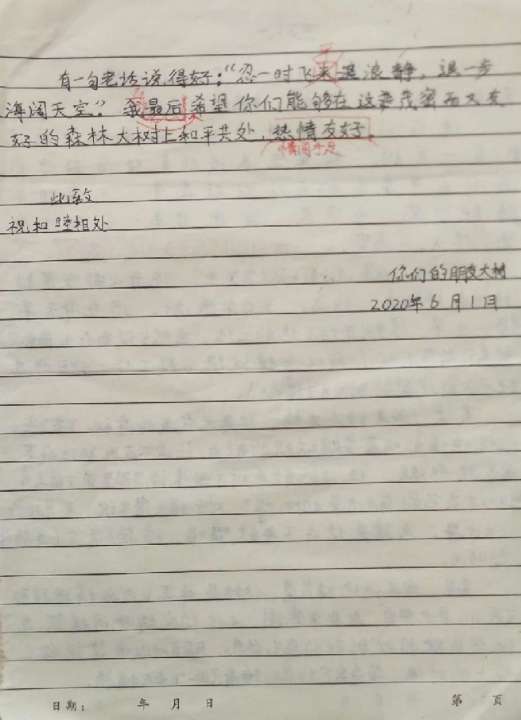 有一句老话说得好："忍一时飞来是浪静，退一步
海阔天空"。我最后希望你们能够在这茂密而又友
好的森林大树上和平共处，热情友好。
情同手足
此致
祝和睦相处
你们的朋友大树
2020年6月1日
日期： 年 月 日 第 页